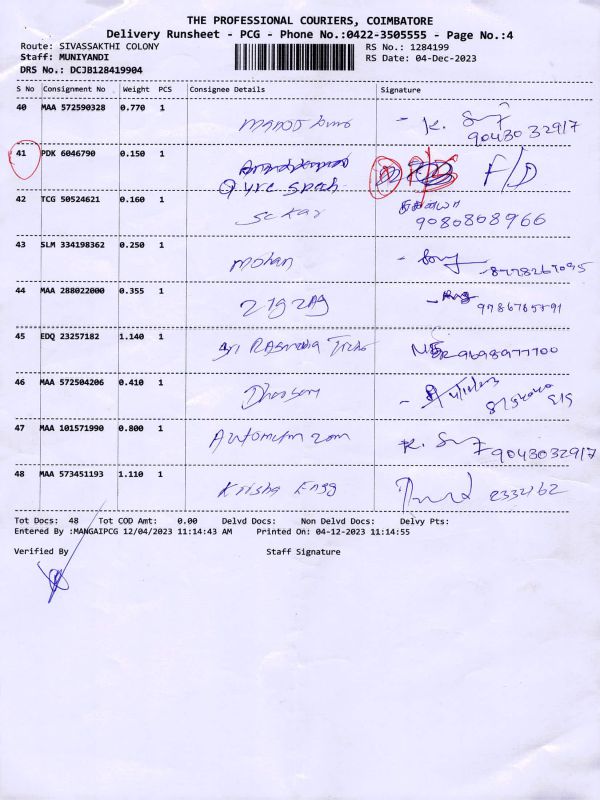 THE PROFESSIONAL COURIERS, COIMBATORE
Delivery Runsheet - PCG - Phone No.:0422-3505555 - Page No.:4
Route: SIVASSAKTHI COLONY RS No.: 1284199
Staff: MUNIYANDI RS Date: 04-Dec-2023
DRS No.: DCJB128419904
S No Consignment No Weight PCS Consignee Details Signature
40 MAA 572590328 0.770 1
K. 9043032917
41 PDK 6046790 0.150 1 F/D
42 TCG 50524621 0.160 1 Sekar
9080808966
43 SLM 334198362 0.250 1 mohan
44 MAA 288022000 0.355 1 zigzag
45 EDQ 23257182 1.140 1 Sri
46 MAA 572504206 0.410 1
47 MAA 101571990 0.800 1 K. 9043032917
48 MAA 573451193 1.110 1 Krisha Engg 2332162
Tot Docs: 48 Tot COD Amt: 0.00 Delvd Docs: Non Delvd Docs: Delvy Pts:
Entered By :MANGAIPCG 12/04/2023 11:14:43 AM Printed On: 04-12-2023 11:14:55
Verified By Staff Signature